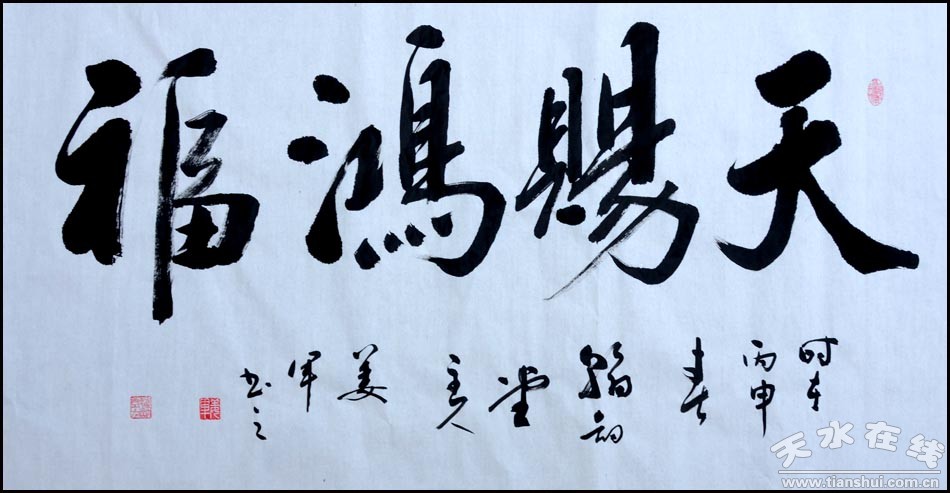 天赐鸿福
时在
丙申
春
翰韵
堂
主人
姜
军
书之
天水在线
www.tianshui.com.cn